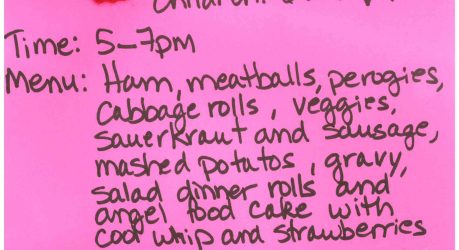 Time: 5-7pm
Menu: Ham, meatballs, perogies,
cabbage rolls, veggies,
sauerkraut and sausage,
mashed potatos, gravy,
salad dinner rolls and
angel food cake with
cool whip and strawberries